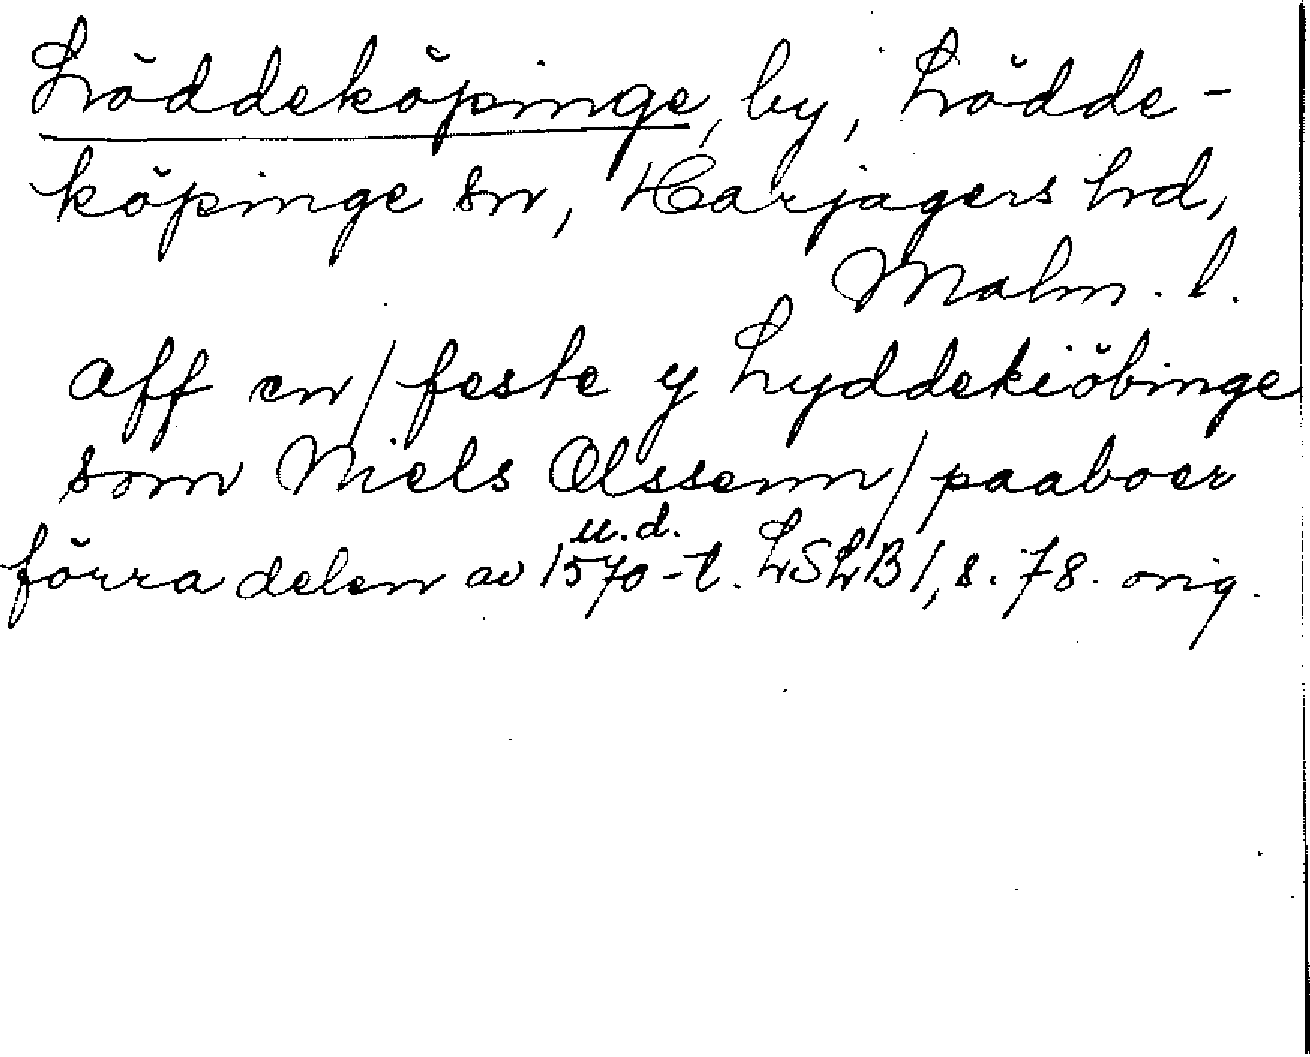 Löddeköpinge, by, Lödde-
köpinge sn, Harjagers hd,
Malm. l.
aff en / feste y Lyddekiöbinge
som Niels Olssenn / paaboer
u.d.
förra delen av 1570-t. LSLB 1, s. 78. orig.